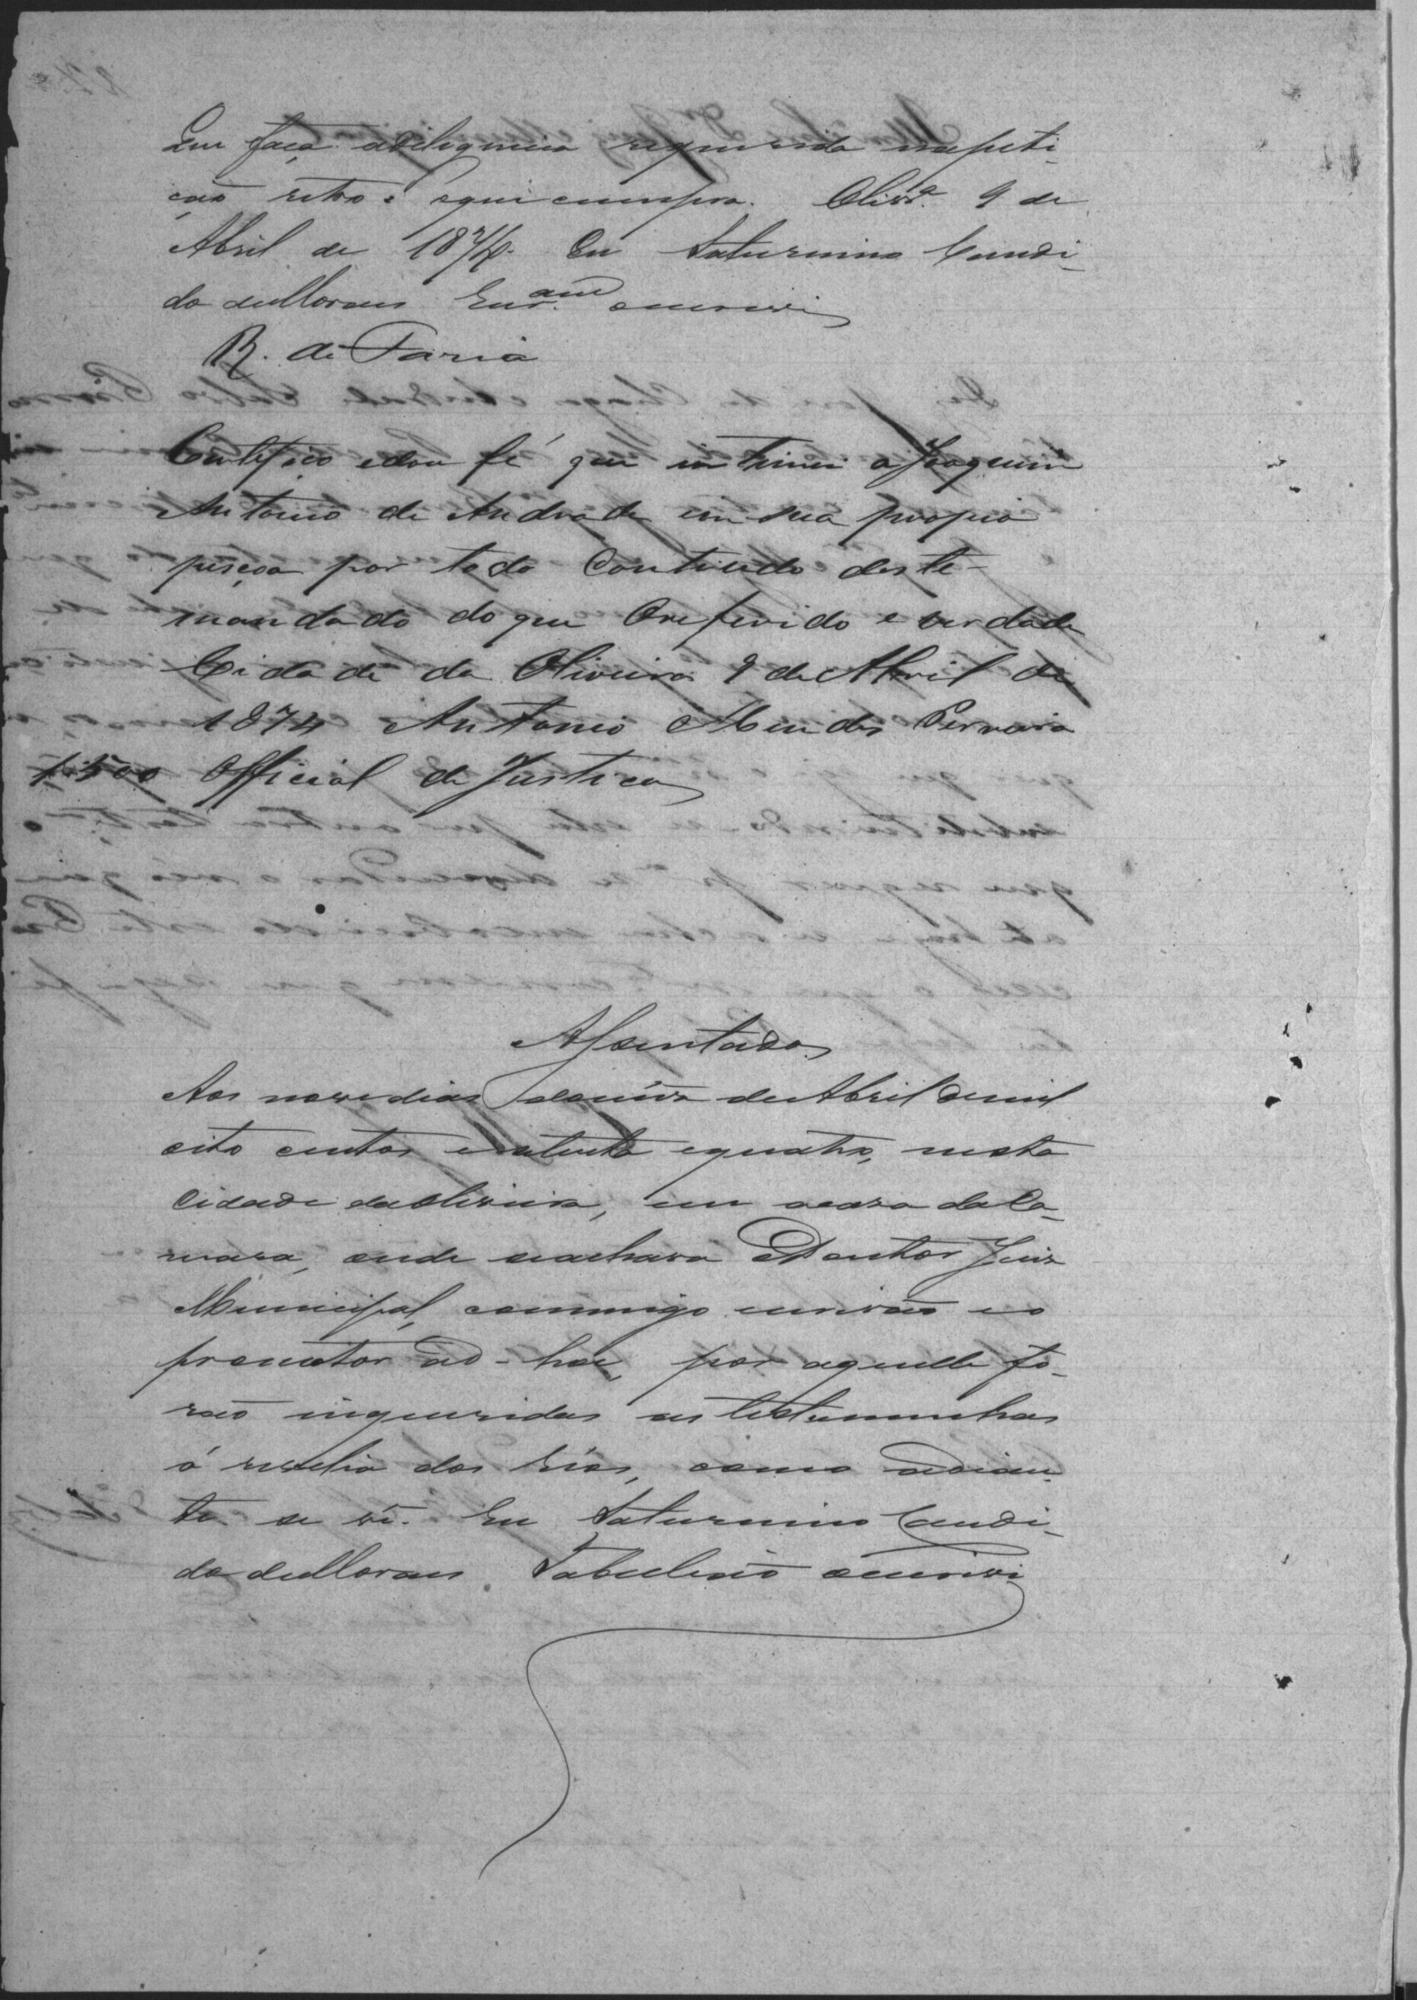 Que faça adeligencia requerida napeti-
ção retro e oque cumpra. Olivr.ª 9 de
Abril de 1874. Eu Saturnino Candi-
do de Moraes Escr.am oescrevi
R. de Faria
Certifico edou fé que intimei a Joaquim
Antonio de Andrade em sua propia
pesçoa por todo Contiudo deste
mandado do que Oreferido e verdade
Cidade da Oliveira 9 de Abril de
1874 Antonio Mendes Perreira
1500 Official de Justica
Assentada
Aos nove dias domês de Abril demil
oito centos esetenta equatro, nesta
Cidade da Oliveira, em acasa da Ca-
mara, onde seachava o Doutor Juiz
Municipal, commigo escrivão eo
promotor ad-hoc, por aquelle fo-
rão inqueridas as testemunhas
á revelia dos Réos, como adian-
te se vê. Eu Saturnino Candi-
do de Moraes Tabelião oescrevi